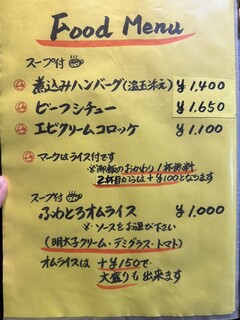 Food Menu
スープ付
煮込みハンバーグ(温玉添え) ¥1,400
ビーフシチュー ¥1,650
エビクリームコロッケ ¥1,100
マークはライス付です
※御飯のおかわり1杯無料
2杯目からは+¥100となります
スープ付
ふわとろオムライス ¥1,000
※・ソースをお選び下さい
(明太子クリーム・デミグラス・トマト)
オムライスは +¥150で
大盛りも出来ます